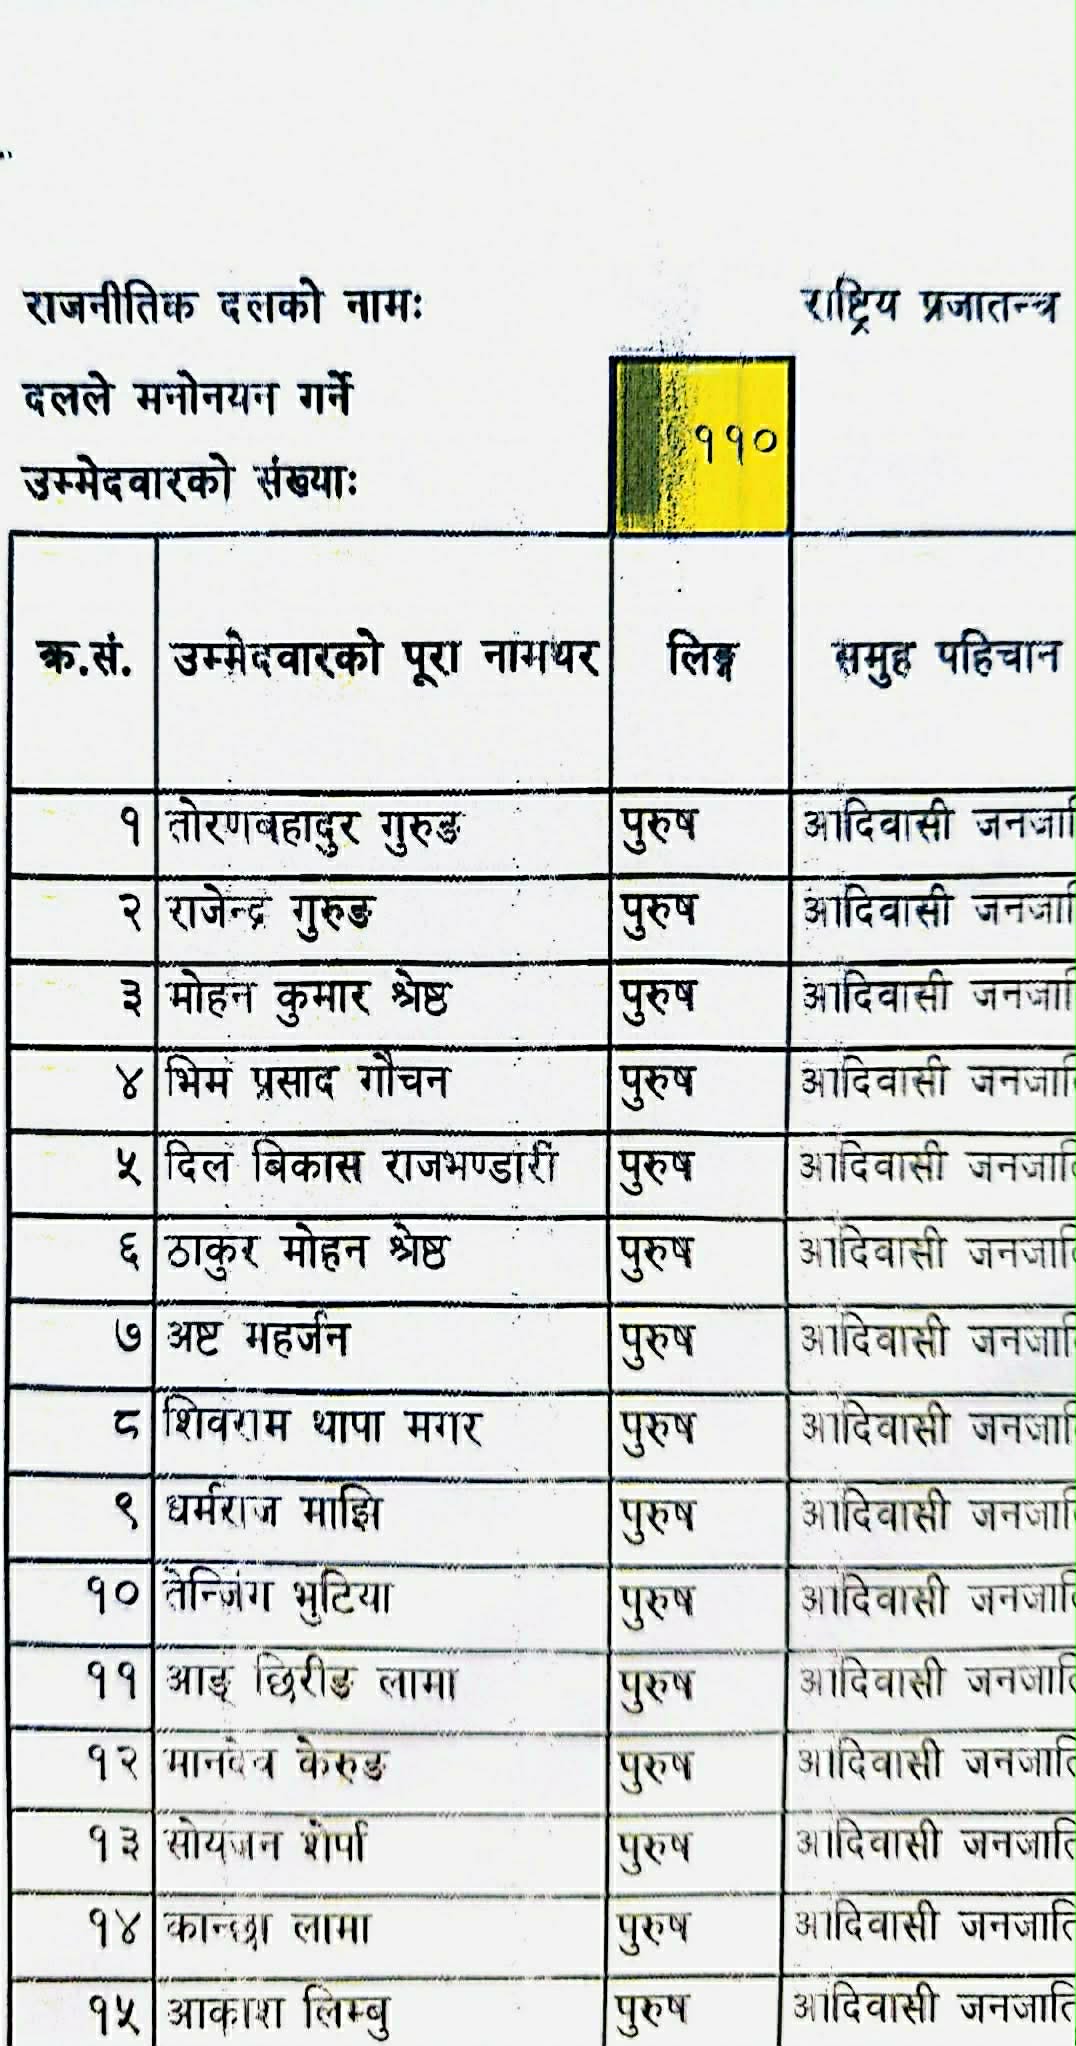 राजनीतिक दलको नामः राष्ट्रिय प्रजातन्त्र
दलले मनोनयन गर्ने
उम्मेदवारको संख्याः ११०
क्र.सं. उम्मेदवारको पूरा नामथर लिङ्ग समुह पहिचान
१ तोरणबहादुर गुरुङ पुरुष आदिवासी जनजाति
२ राजेन्द्र गुरुङ पुरुष आदिवासी जनजाति
३ मोहन कुमार श्रेष्ठ पुरुष आदिवासी जनजाति
४ भिम प्रसाद गौचन पुरुष आदिवासी जनजाति
५ दिल बिकास राजभण्डारी पुरुष आदिवासी जनजाति
६ ठाकुर मोहन श्रेष्ठ पुरुष आदिवासी जनजाति
७ अष्ट महर्जन पुरुष आदिवासी जनजाति
८ शिवराम थापा मगर पुरुष आदिवासी जनजाति
९ धर्मराज माझि पुरुष आदिवासी जनजाति
१० तेन्जिग भुटिया पुरुष आदिवासी जनजाति
११ आङ् छिरीङ लामा पुरुष आदिवासी जनजाति
१२ मानदेव केरुङ पुरुष आदिवासी जनजाति
१३ शेर्पा पुरुष आदिवासी जनजाति
१४ कान्छा लामा पुरुष आदिवासी जनजाति
१५ आकाश लिम्बु पुरुष आदिवासी जनजाति